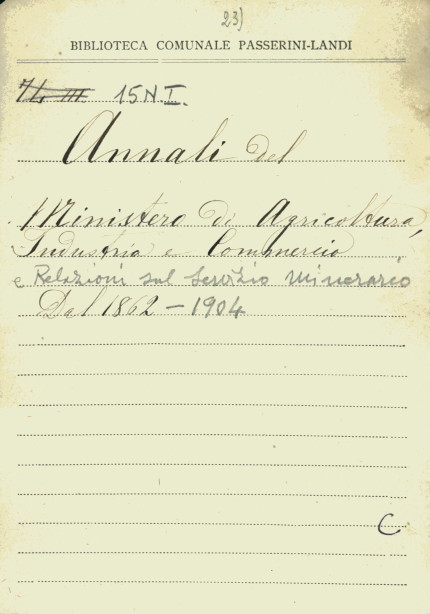 23)
BIBLIOTECA COMUNALE PASSERINI-LANDI
15 N. I.
Annali del
Ministero di Agricoltura,
Industria e Commercio
e Relazioni sul Servizio Minerario
Dal 1862 - 1904
C